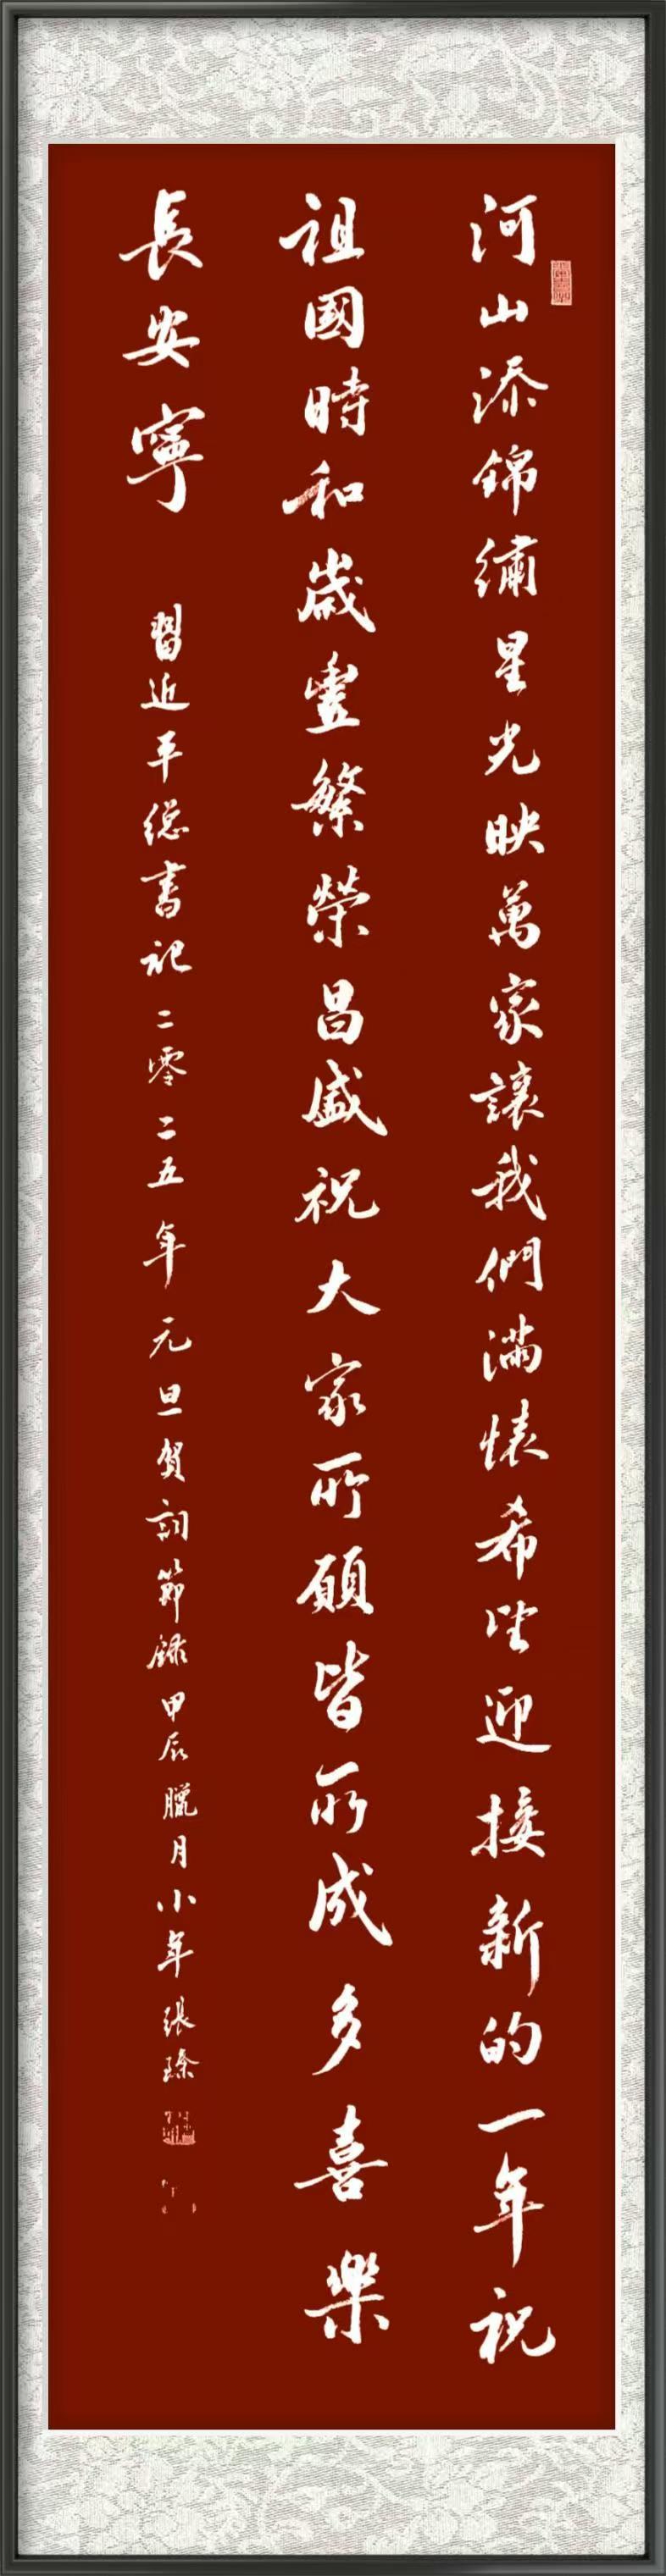 河山添錦繡星光映萬家讓我們滿懷希望迎接新的一年祝
祖國時和歲豐繁榮昌盛祝大家所願皆所成多喜樂
長安寧
習近平總書記二零二五年元旦賀詞節錄甲辰臘月小年張臻